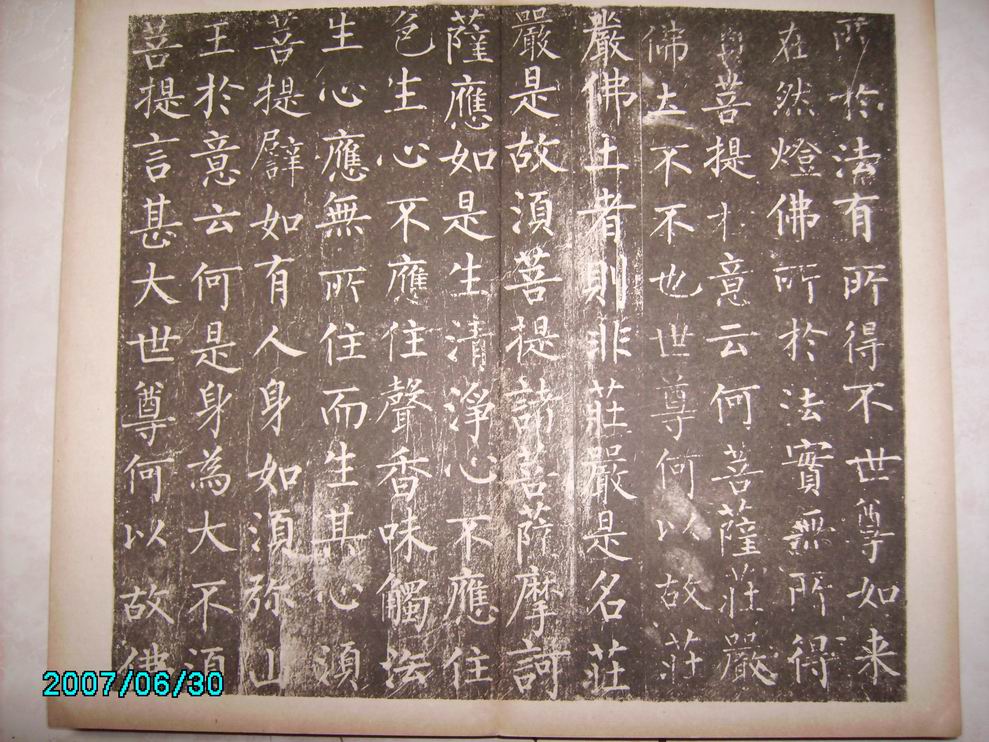 所於法有所得不世尊如来
在然燈佛所於法實無所得
須菩提於意云何菩薩莊嚴
佛土不不也世尊何以故莊
嚴佛土者則非莊嚴是名莊
嚴是故須菩提諸菩薩摩訶
薩應如是生清淨心不應住
色生心不應住聲香味觸法
生心應無所住而生其心須
菩提譬如有人身如須弥山
王於意云何是身為大不須
菩提言甚大世尊何以故佛
2007/06/30